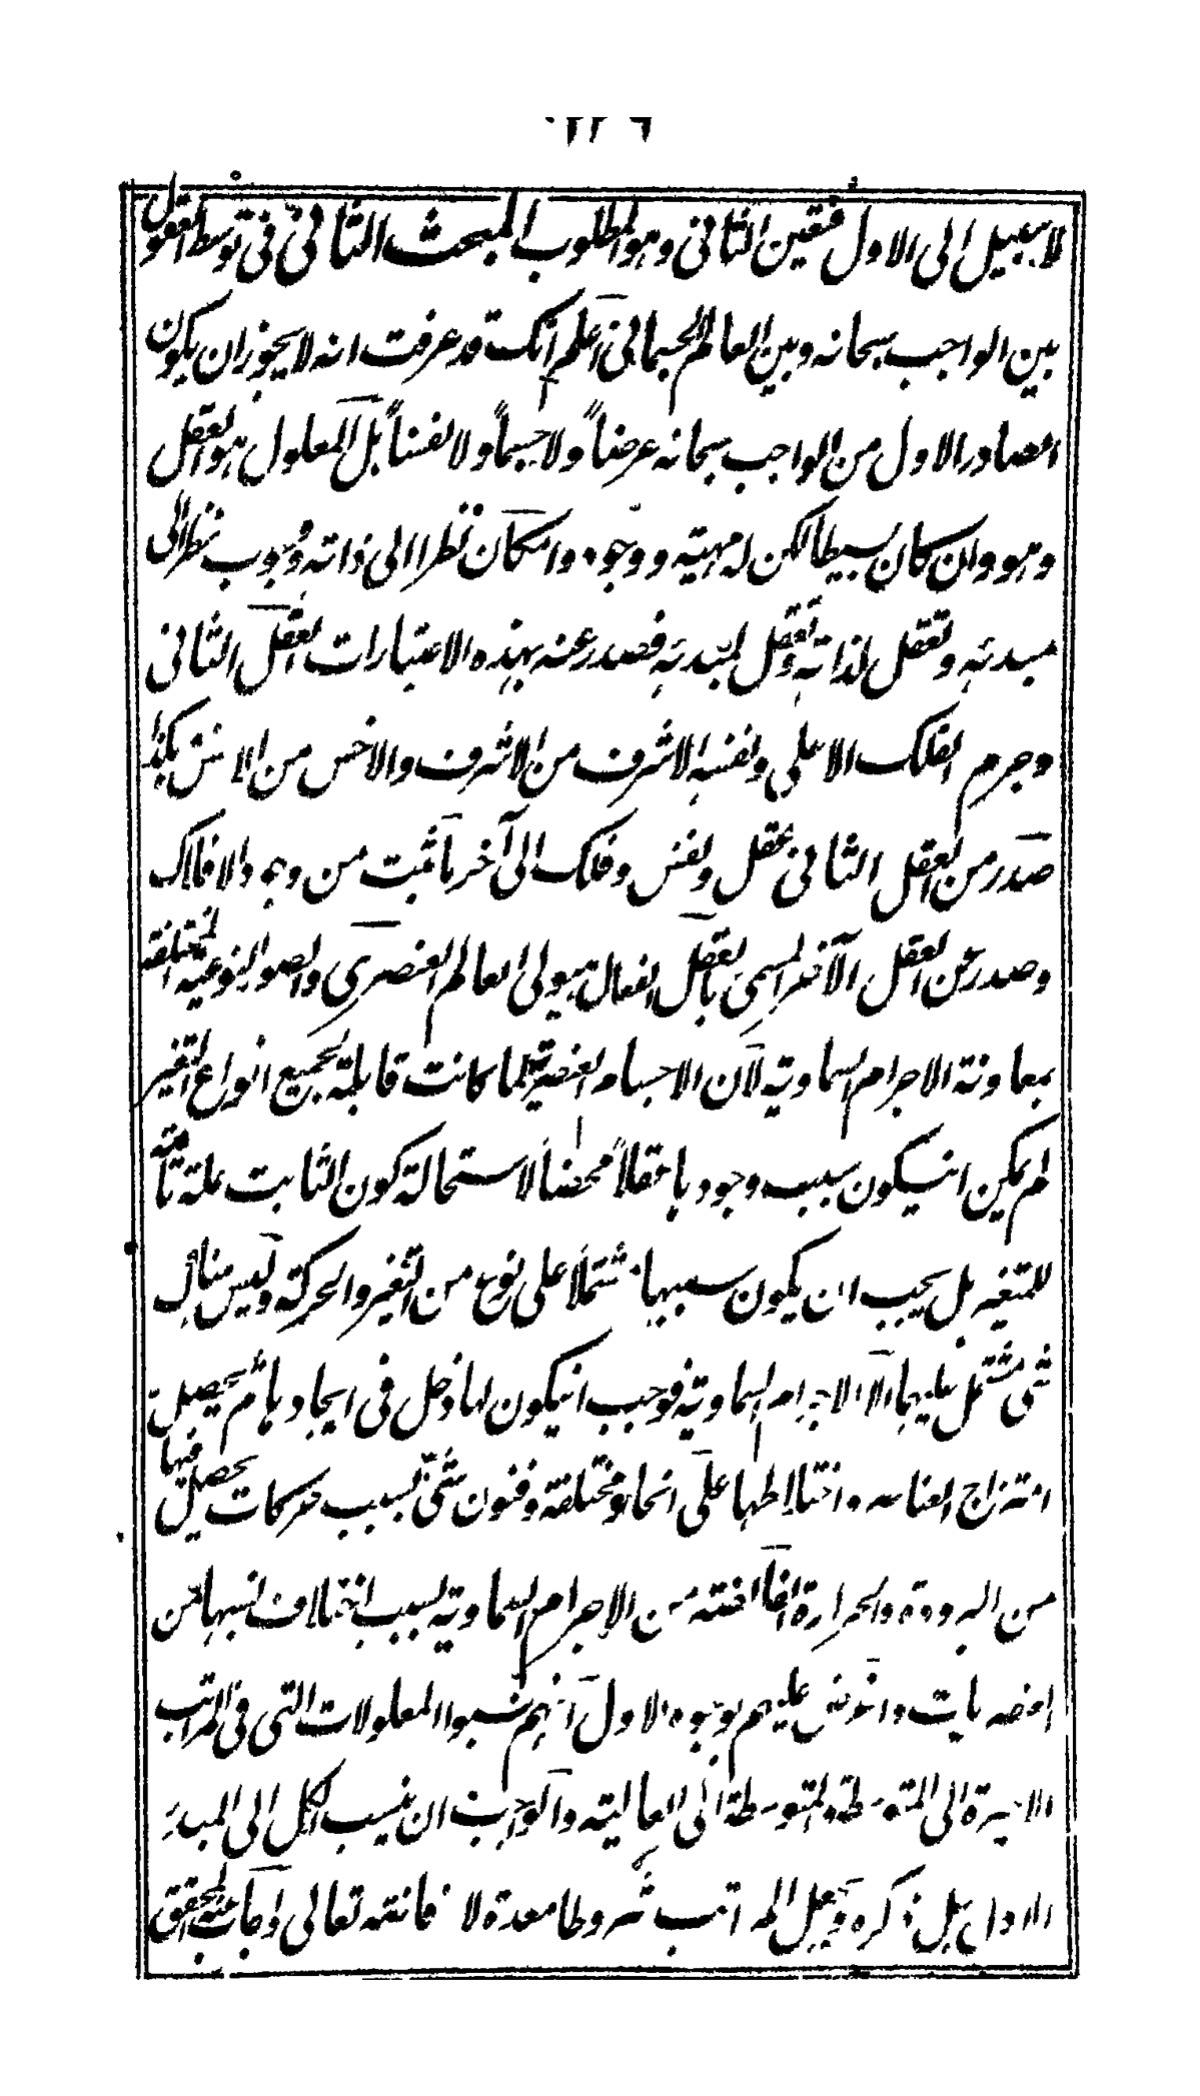 لا سبيل الى الاول فتعين الثاني وهو المطلوب المبحث الثاني في توسط العقول
بين الواجب سبحانه وبين العالم الجسماني اعلم انك قد عرفت انه لا يجوز ان يكون
الصادر الاول من الواجب سبحانه عرضاً ولا جسماً ولا نفساً بل المعلول هو العقل
وهو وان كان بسيطا لكن له مهية ووجود وامكان نظرا الى ذاته ووجوب نظرا الى
مبدئه وتعقل لذاته وتعقل لمبدئه فصدر عنه بهذه الاعتبارات العقل الثاني
وجرم الفلك الاعلى ونفسه الاشرف من الاشرف والاخس من الاخس هكذا
صدر من العقل الثاني عقل ونفس وفلك الى آخر ما ثبت من وجود الافلاك
وصدر عن العقل الآخر المسمى بالعقل الفعال هيولى العالم العنصري والصور النوعية المختلفة
بمعاونة الاجرام السماوية لان الاجسام العنصرية لما كانت قابلة لجميع انواع التغير
لم يمكن انيكون سبب وجودها عقلاً محضاً لاستحالة كون الثابت علة تامة
للمتغير بل يجب ان يكون سببها مشتملا على نوع من التغير والحركة وليس هناك
شئ مشتمل عليهما الا الاجرام السماوية فوجب انيكون لها دخل في ايجادها ثم يحصل
امتزاج العناصر واختلاطها على انحاء مختلفة وفنون شتى بسبب حركات تحصل فيها
من البرودة والحرارة الفائضة من الاجرام السماوية بسبب اختلاف نسبها من
العنصريات واعترض عليهم بوجوه الاول انهم نسبوا المعلولات التي في المراتب
الاخيرة الى المتوسطة والمتوسطة الى العالية والواجب ان ينسب الكل الى المبدء
الاول جل ذكره وتجعل المراتب شروطا معدة لا فاضته تعالى واجاب عنه المحقق